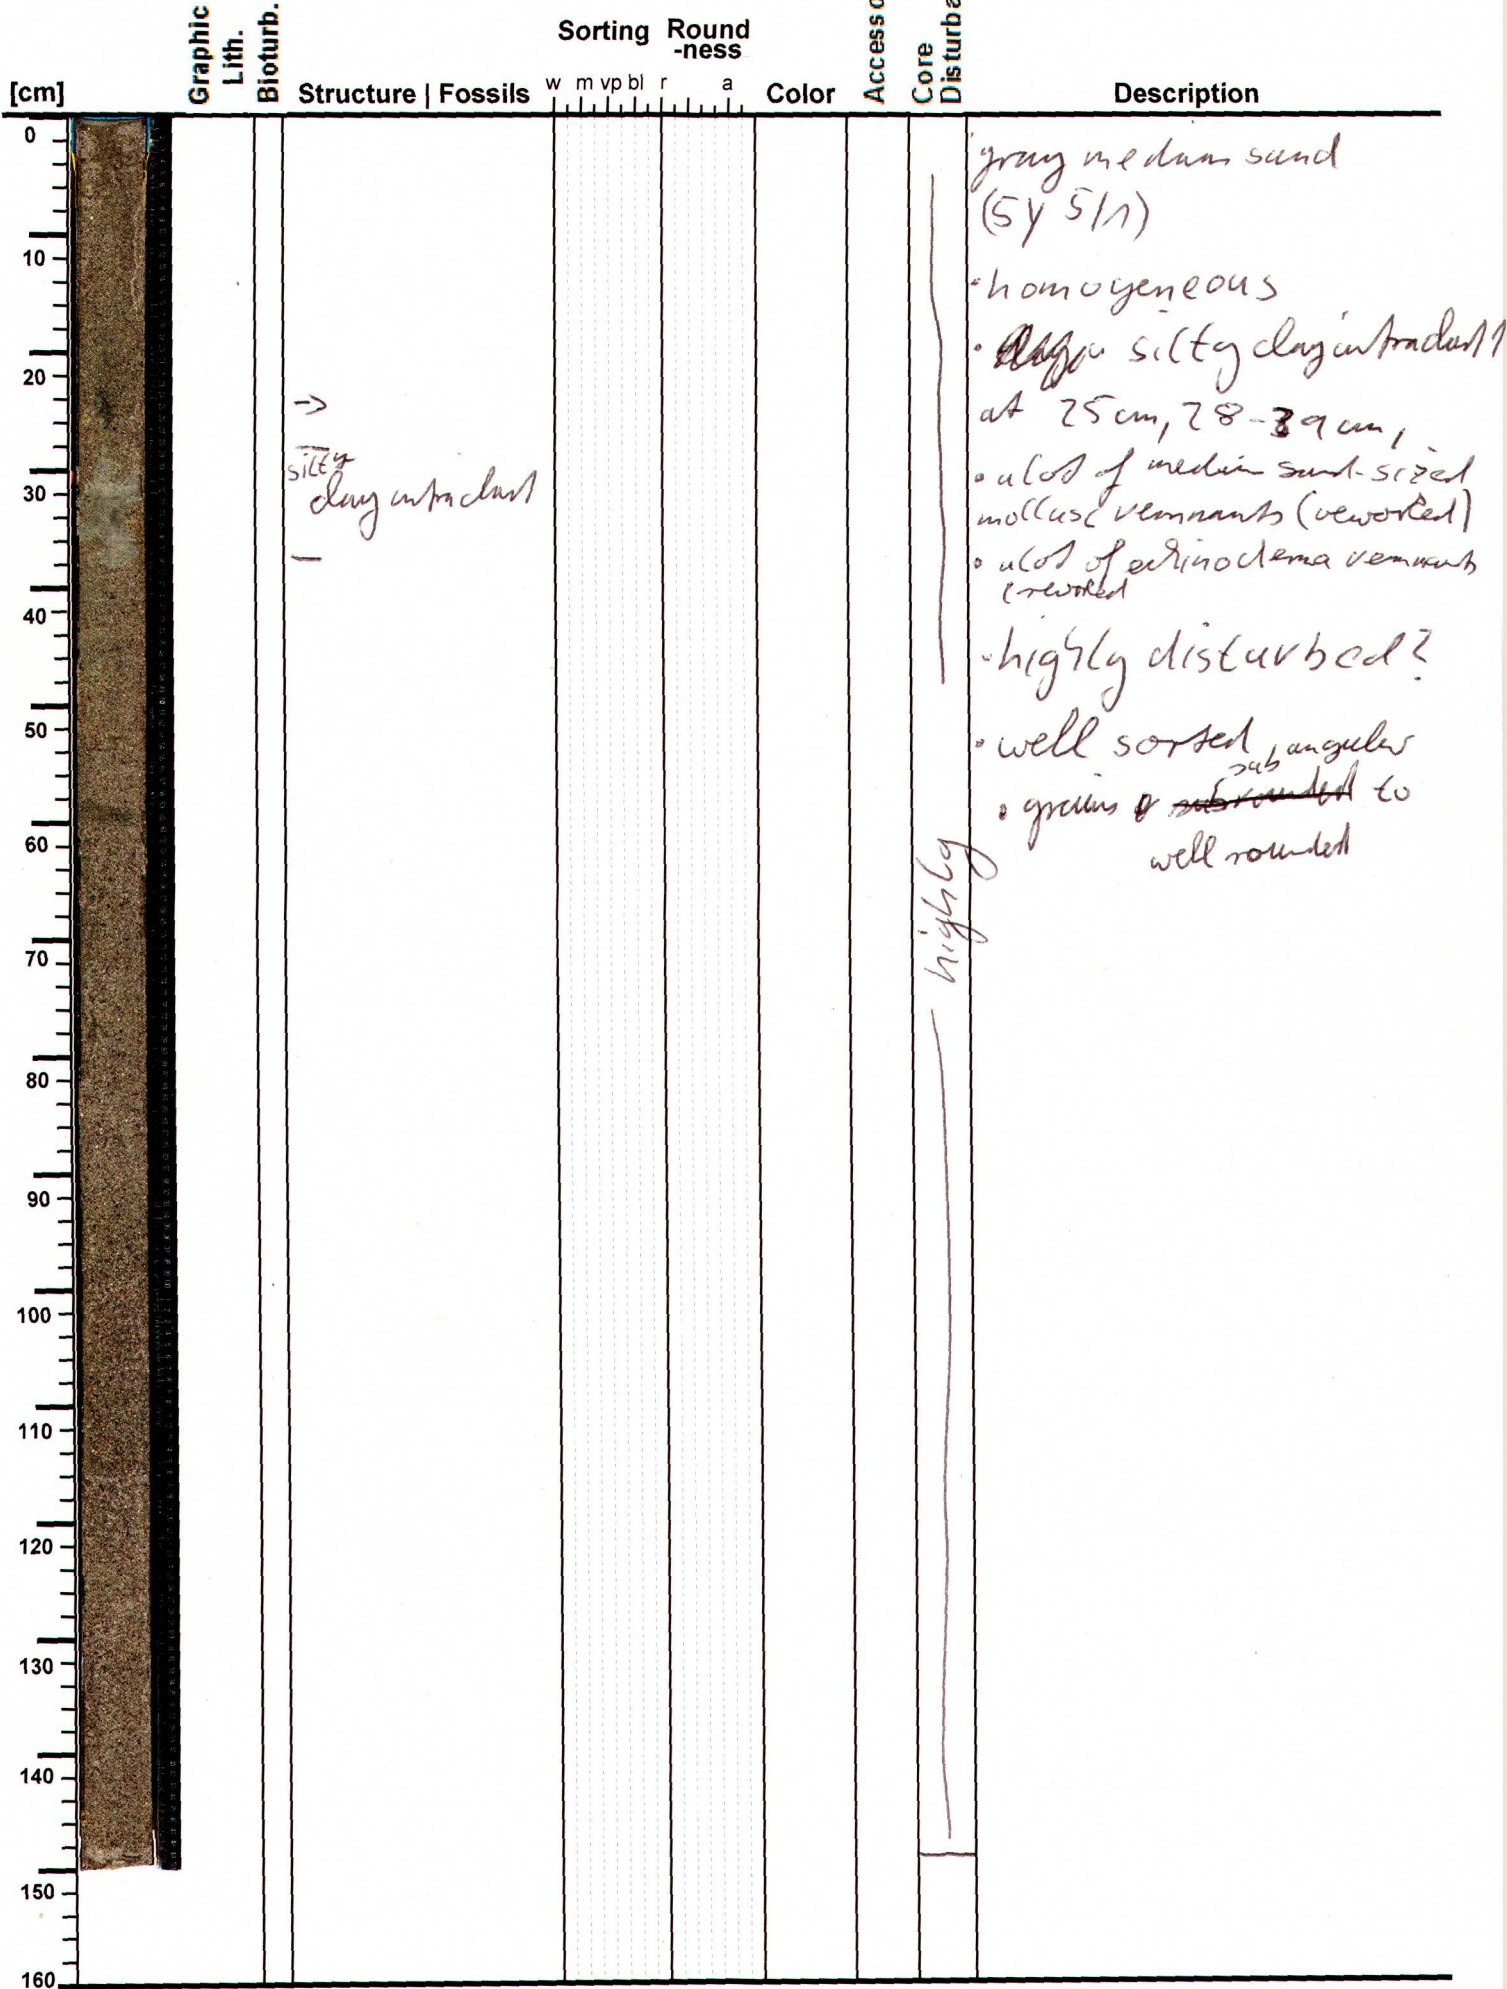 Graphic
Lith.
Bioturb.
Sorting
Round
-ness
Core
Disturba
[cm]
Structure | Fossils
w m vp bl r a
Color
Accesso
Description
0
10
20
30
40
50
60
70
80
90
100
110
120
130
140
150
160
->
silty
clay intraclast
highly
gray medium sand
(5Y 5/1)
· homogeneous
· silty clay intraclast
at 25cm, 28-39cm,
· a lot of medium sand-sized
mollusc remnants (reworked)
· a lot of echinoderma remnants
(reworked
· highly disturbed?
· well sorted, angular
sub
· grains subrounded to
well rounded